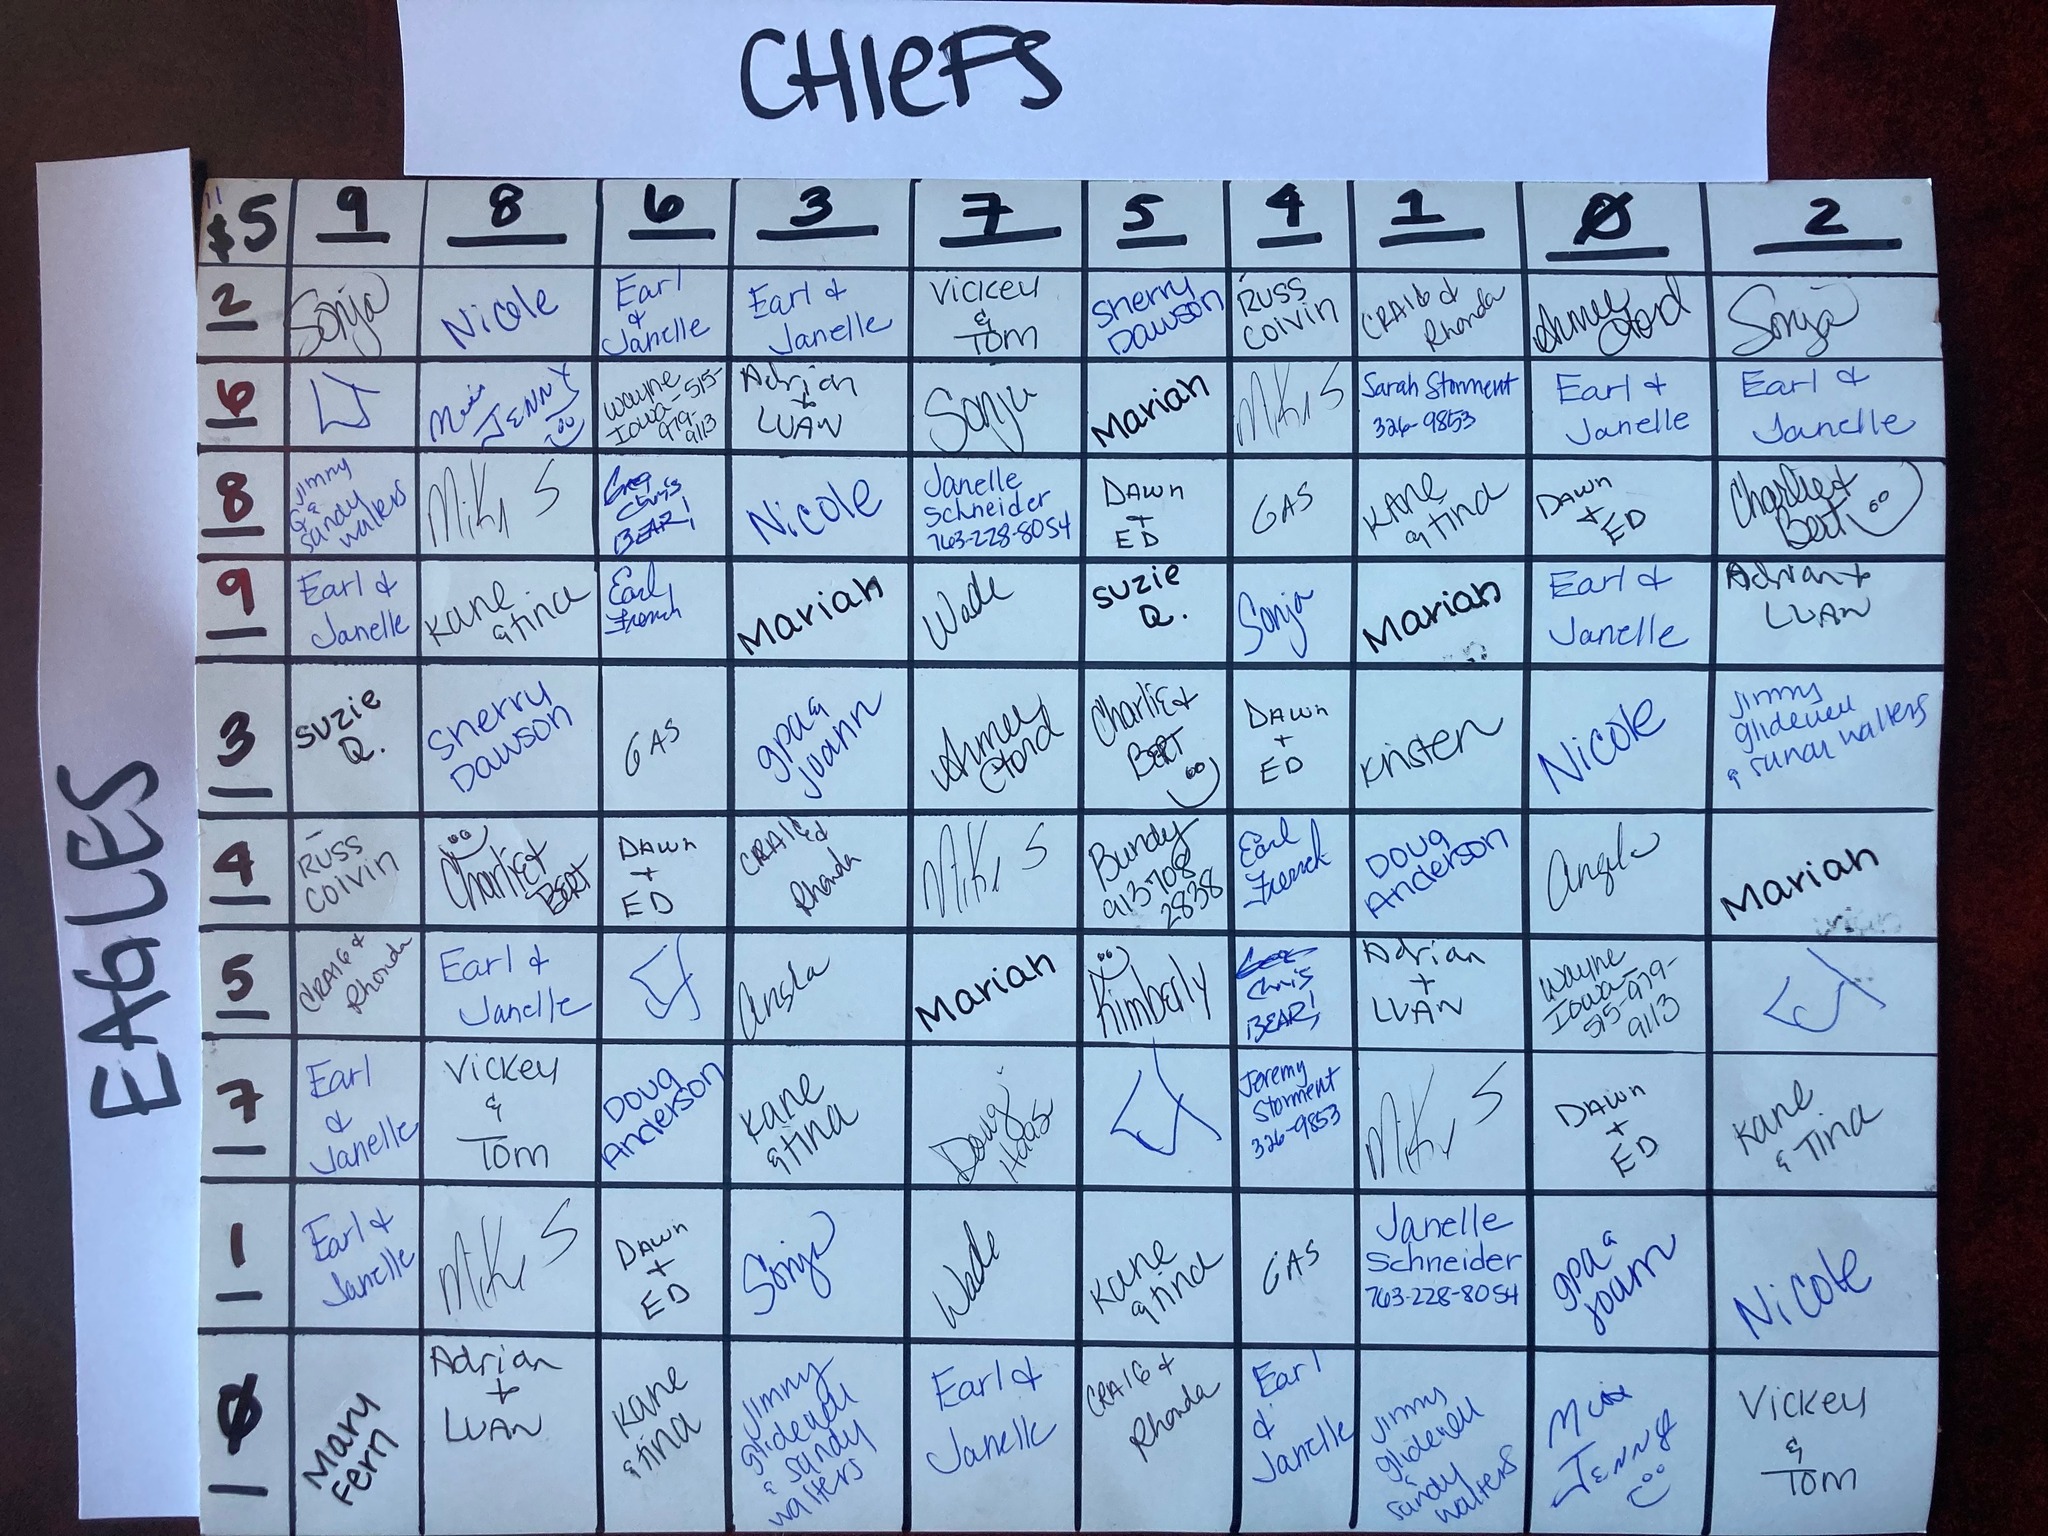 CHIEFS
EAGLES
$5 9 8 6 3 7 5 4 1 0 2
2 Sonja Nicole Earl & Janelle Earl & Janelle Vickey & Tom Sherry Dawson Russ Colvin CRAIG & Rhonda Sonja
6 Miss JENNY Wayne Iowa-515-979-9113 Adrian + LUAN Sonja Mariah MIKE S Sarah Storment 326-9853 Earl & Janelle Earl & Janelle
8 Jimmy G & Sandy Walters MIKE S Chris BEAR! Nicole Janelle Schneider 763-228-8054 DAWN + ED GAS KANE & Tina DAWN + ED Charlie & Bert
9 Earl & Janelle KANE & Tina Earl French Mariah Wade SUZIE Q. Sonja Mariah Earl & Janelle Adrian + LUAN
3 SUZIE Q. Sherry Dawson GAS gpa & Joann Charlie & BERT DAWN + ED Kristen Nicole Jimmy & Walters
4 Russ Colvin Charlie & BERT DAWN + ED CRAIG & Rhonda MIKE S Bundy 913-708 2838 Earl French Doug Anderson Angela Mariah
5 CRAIG & Rhonda Earl & Janelle Angela Mariah Kimberly Chris BEAR! Adrian + LUAN Wayne Iowa- 515-979-9113
7 Earl & Janelle Vickey & Tom Doug Anderson KANE & Tina Doug Haas Jeremy Storment 326-9853 MIKE S DAWN + ED KANE & Tina
1 Earl & Janelle MIKE S DAWN + ED Sonja Wade KANE & Tina GAS Janelle Schneider 763-228-8054 gpa & Joann Nicole
0 Mary Fern Adrian + LUAN KANE & Tina Jimmy & Sandy Walters Earl & Janelle CRAIG & Rhonda Earl & Janelle Jimmy Sandy Walters Miss JENNY Vickey & Tom